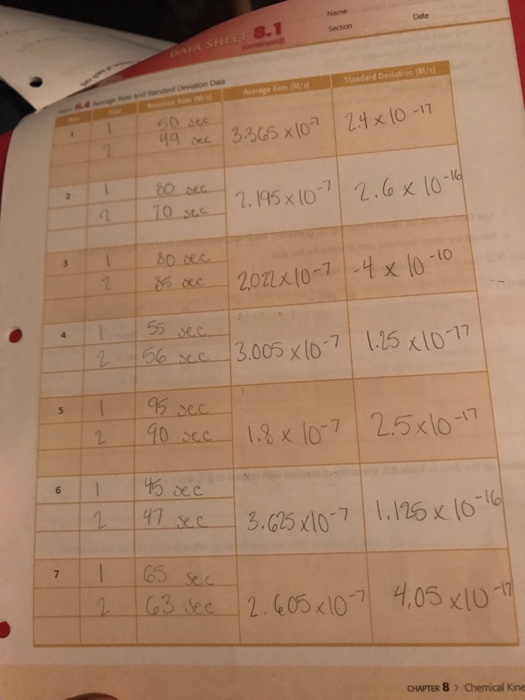 Name
Date
DATA SHEET 8.1
Section
(continued)
8.4 Average Rate and Standard Deviation Data
Run Trial Reaction Rate (M/s) Average Rate (M/s) Standard Deviation (M/s)
1 1 50 sec 3.365 x10-7 2.4 x 10 -17
2 49 sec
2 1 80 sec 2.195 x 10-7 2.6 x 10-16
2 70 sec
3 1 80 sec 2.022 x 10-7 -4 x 10-10
2 85 sec
4 1 55 sec 3.005 x10-7 1.25 x10-17
2 56 sec
5 1 95 sec 1.8 x 10-7 2.5x10-17
2 90 sec
6 1 45 sec 3.625 x10-7 1.125 x 10-16
2 47 sec
7 1 65 sec 2.605 x10-7 4.05 x10-17
2 63 sec
CHAPTER 8 > Chemical Kine